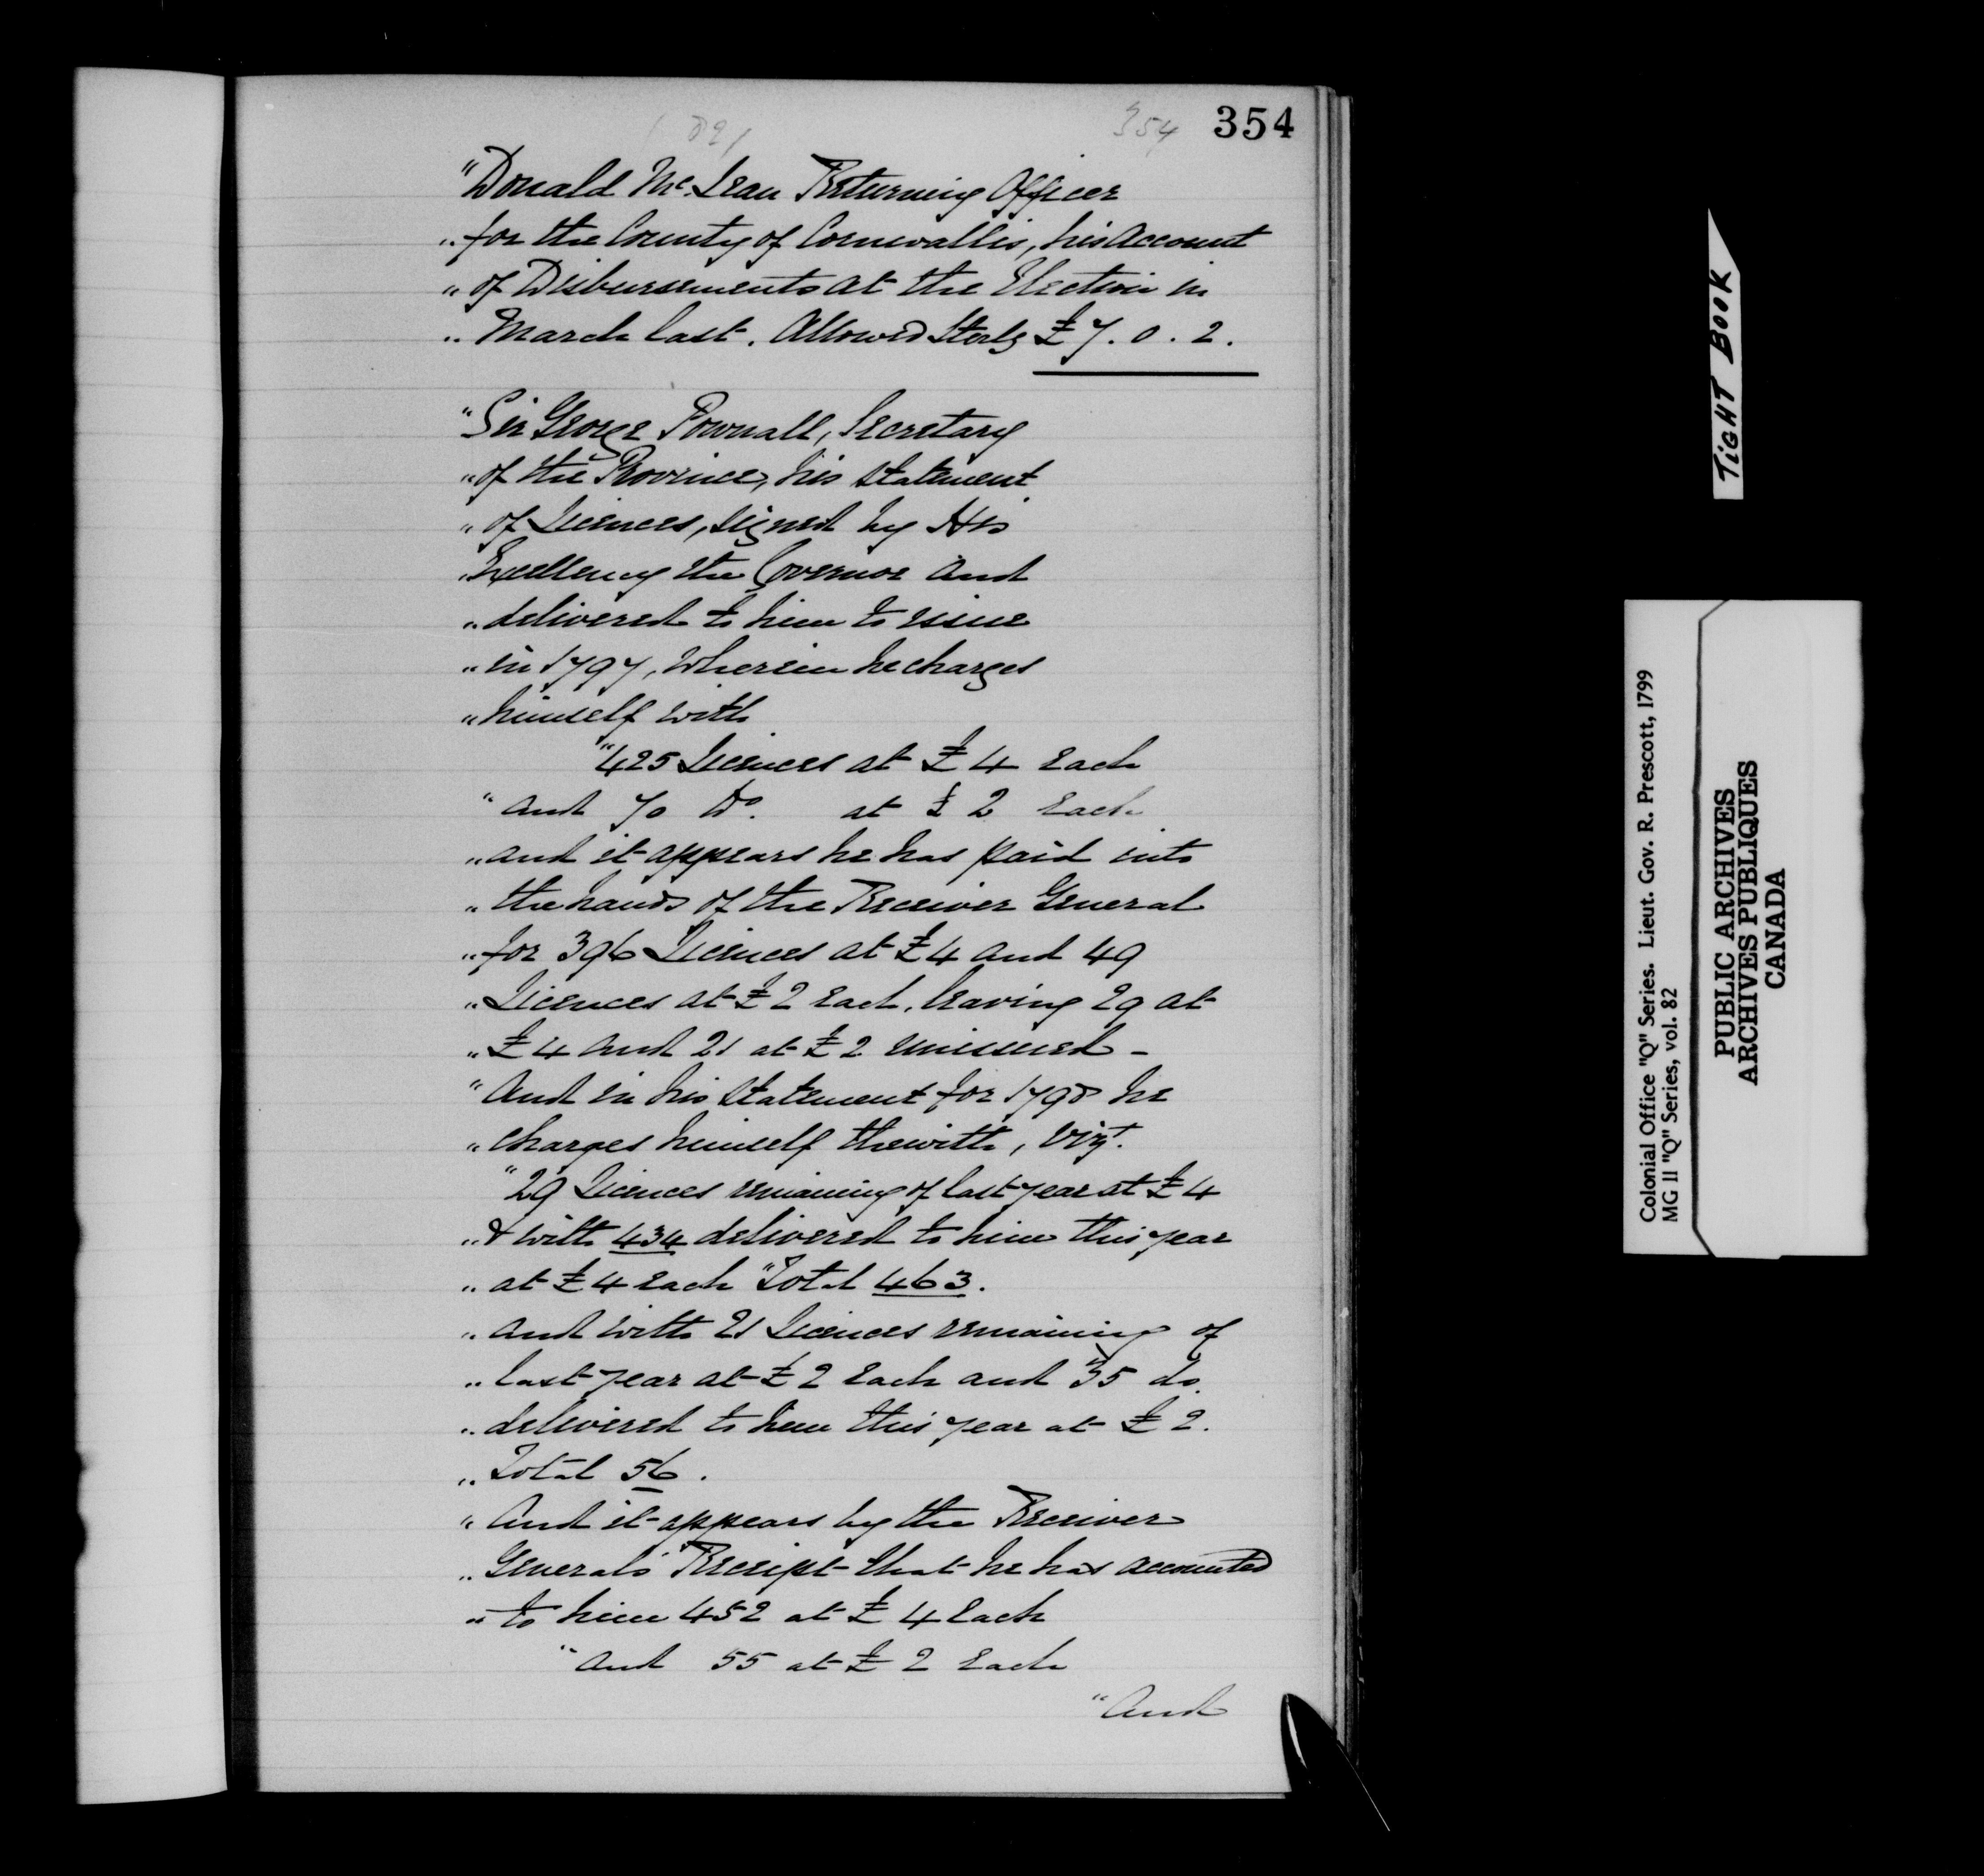 354 354
"Donald Mc.Lean Returning Officer
"for the County of Cornwallis, his Account
"of Disbursements at the Election in
"March last. Allowed Sterlg £7.0.2.
"Sir George Pownall, Secretary
"of the Province, his statement
"of Licences, signed by His
"Excellency the Governor and
"delivered to him to issue
"in 1797, wherein he charges
"himself with
"425 Licences at £4 each
"and 70 Do. at £2 each
"and it appears he has paid into
"the hands of the Receiver General
"for 396 Licences at £4 and 49
"Licences at £2 each, leaving 29 at
"£4 and 21 at £2 unissued -
"And in his Statement for 1798 he
"charges himself thewith, Vizt.
"29 Licences remaining of last year at £4
"& with 434 delivered to him this year
"at £4 each "Total 463.
"and with 21 Licences remaining of
"last year at £2 each and 35 do.
"delivered to him this year at £2.
"Total 56.
"And it appears by the Receiver
"General's Receipt that he has accounted
"to him 452 at £4 each
"and 55 at £2 each
"And
TIGHT BOOK
Colonial Office "Q" Series. Lieut. Gov. R. Prescott, 1799
MG 11 "Q" Series, vol. 82
PUBLIC ARCHIVES
ARCHIVES PUBLIQUES
CANADA